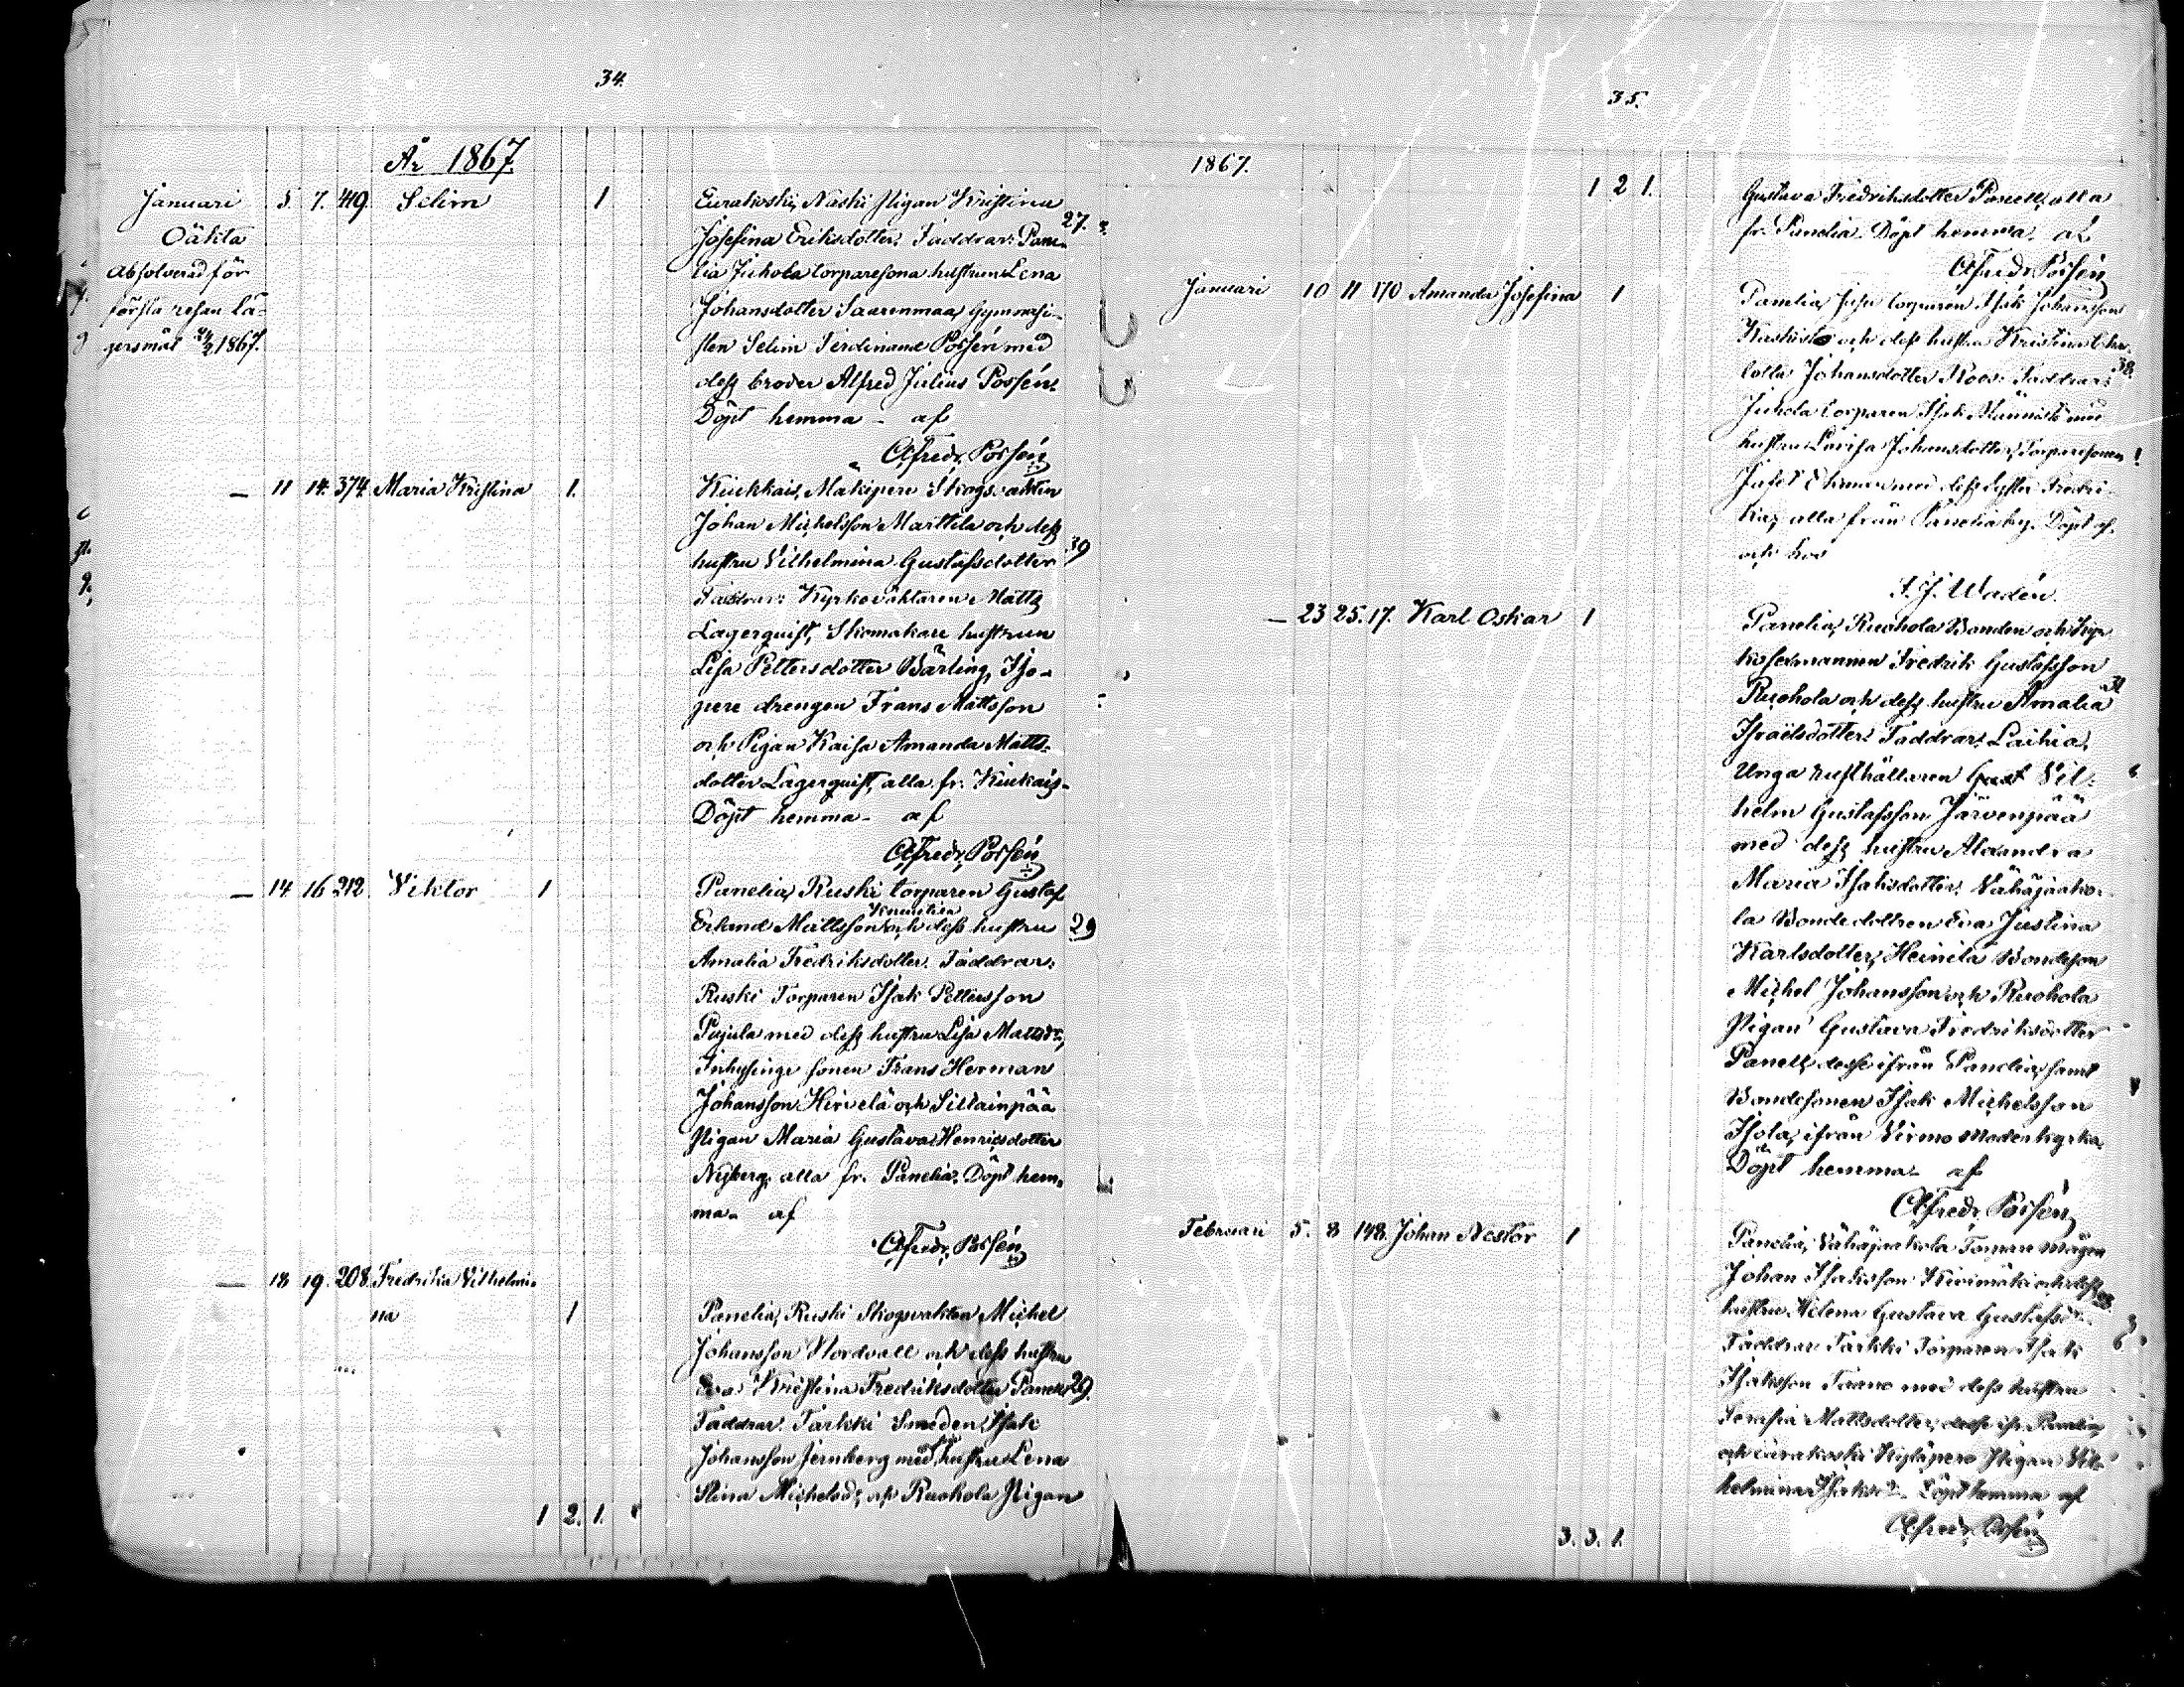 34.
År 1867.
Januari 5. 7. 419. Selim 1
Oäkta
Absolverad för
första resan lä-
gersmål 24/2 1867.
Eurakoski, Naski Pigan Kristina
Josefina Eriksdotter. Faddrar: Pane- 27.
lia Juhola torparesona hustrun Lena
Johansdotter Saarenmaa, Gymnasi-
sten Selim Ferdinand Possén med
dess broder Alfred Julius Possén.
Döpt hemma - af
Alfredr. Possén
— 11 14. 374. Maria Kristina 1.
Kiukkais, Mäkipere Skogsvaktin
Johan Michelsson Marttila och dess
hustru Vilhelmina Gustafsdotter 39
Faddrar: Kyrkoväktaren Matts
Lagerquist, Skomakare hustrun
Lisa Pettersdotter Bärling, Iso-
pere drengen Frans Mattsson
och Pigan Kaisa Amanda Matts-
dotter Lagerquist, alla fr. Kiukais-
Döpt hemma - af
Alfredr. Possén
— 14 16 212. Viktor 1
Panelia, Ruski torparen Gustaf
Erland Mattsson och dess hustru 29
Amalia Fredriksdotter. Faddrar:
Ruski Torparen Isak Pettersson
Pujula med dess hustru Lisa Mattsdr,
Inhysinge sonen Frans Herman
Johansson Hirvelä och Sillainpää
Pigan Maria Gustava Henricsdotter
Nyberg, alla fr. Panelia. Döpt hem-
ma - af
Alfredr. Possén
— 18 19. 208. Fredrika Vilhelmi-
na 1
Panelia, Ruski Skogsvakten Michel
Johansson Nordvall och dess hustru
Eva Kristina Fredriksdotter Panell 29.
Faddrar: Tarkki Smeden Isak
Johansson Jernberg med hustru Lena
Stina Michelsd; och Ruohola Pigan
1 2. 1.
35.
1867.
1 2 1.
Gustava Fredriksdotter Panell, alla
fr. Panelia. Döpt hemma af
Alfredr. Possén
Januari 10 11 170 Amanda Josefina 1
Panelia, Juho torparen Isak Johansson
Kaskisto och dess hustru Kristina Char-
lotta Johansdotter Roos. Faddrar: 38.
Juhola torparen Isak Männistö med
hustru Lovisa Johansdotter, Torparesonen
Josef Ehrman med dess syster Fredri-
ka, alla från Panelia by. Döpt af
och hos
A. J. Wadén.
— 23 25. 17. Karl Oskar 1
Panelia, Ruohola Bonden och Kyr-
kosexmannen Fredrik Gustafsson
Ruohola och dess hustru Amalia
Israëlsdotter. Faddrar: Laihia,
Unga rusthållaren Gust Vil-
helm Gustafsson Järvenpää
med dess hustru Alexandra
Maria Isaksdotter. Vähäjaako-
la Bondedottren Eva Justina
Karlsdotter, Heinila Bondeson
Michel Johansson och Ruohola
Pigan Gustava Fredriksdotter
Panell, desse ifrån Panelia, samt
Bondesonen Isak Michelsson
Isola, ifrån Virmo Moderkyrka.
Döpt hemma - af
Alfredr. Possén
Februari 5. 8 148. Johan Nestor 1
Panelia, Vähäjaakola Torpare mågen
Johan Isaksson Kivimäki och dess
hustru Helena Gustava Gustafsdr.
Faddrar Tarkki Torparen Isak
Isaksson Taano med dess hustru
Serafia Mattsdotter, desse ifr. Panelia,
och Eurakoski Kyläpere Pigan Vil-
helmina Isaksd. Döpt hemma af
Alfredr. Possén
3. 3. 1.